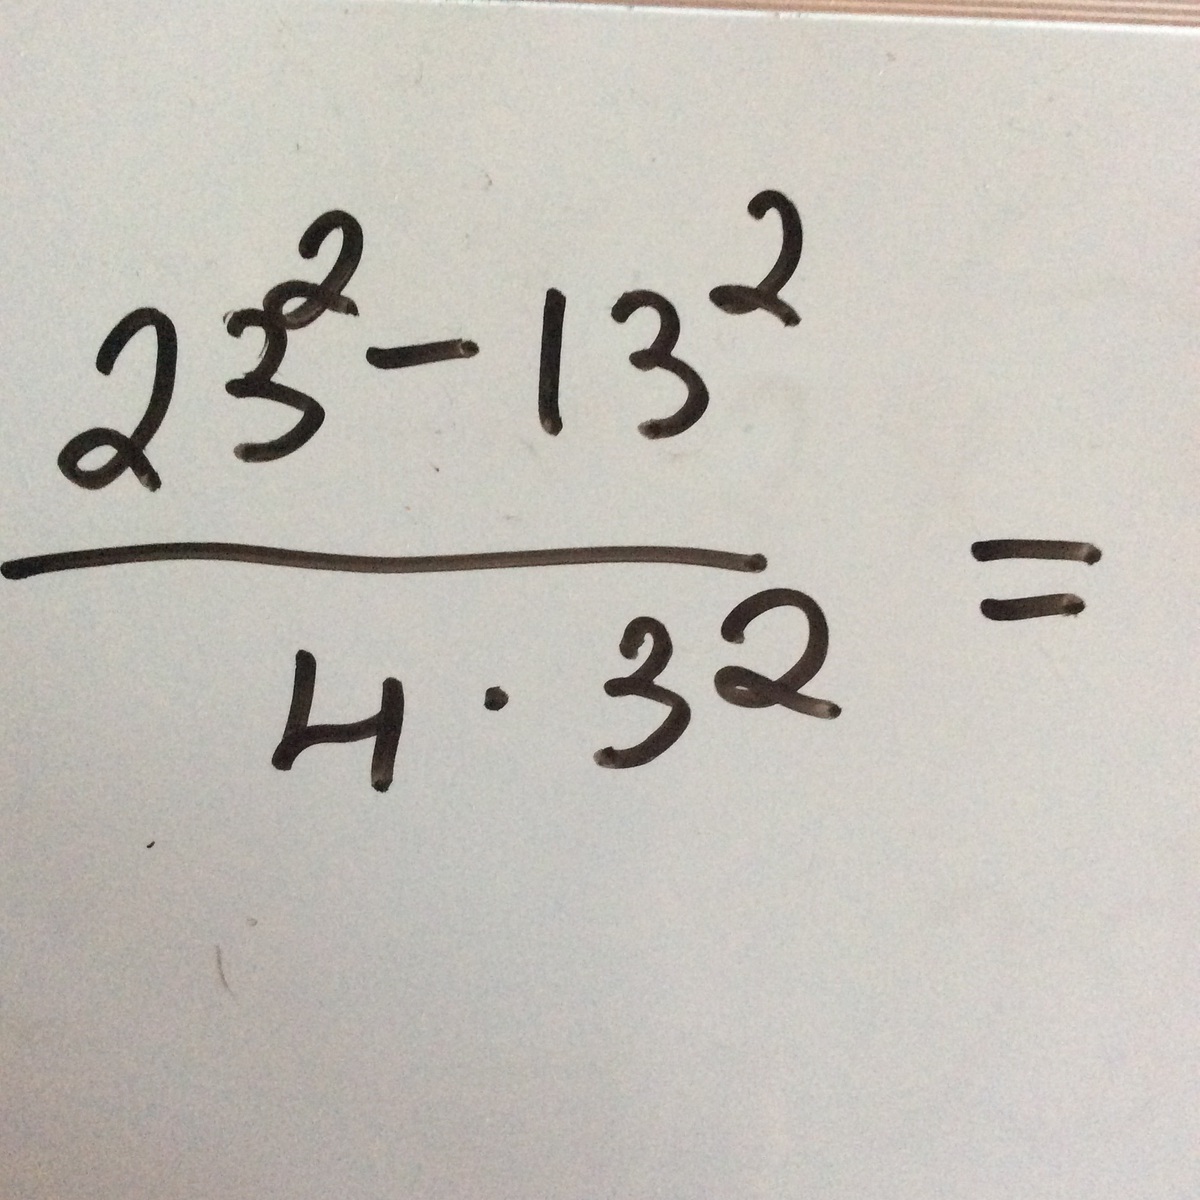 23² - 13²
4 · 32 =